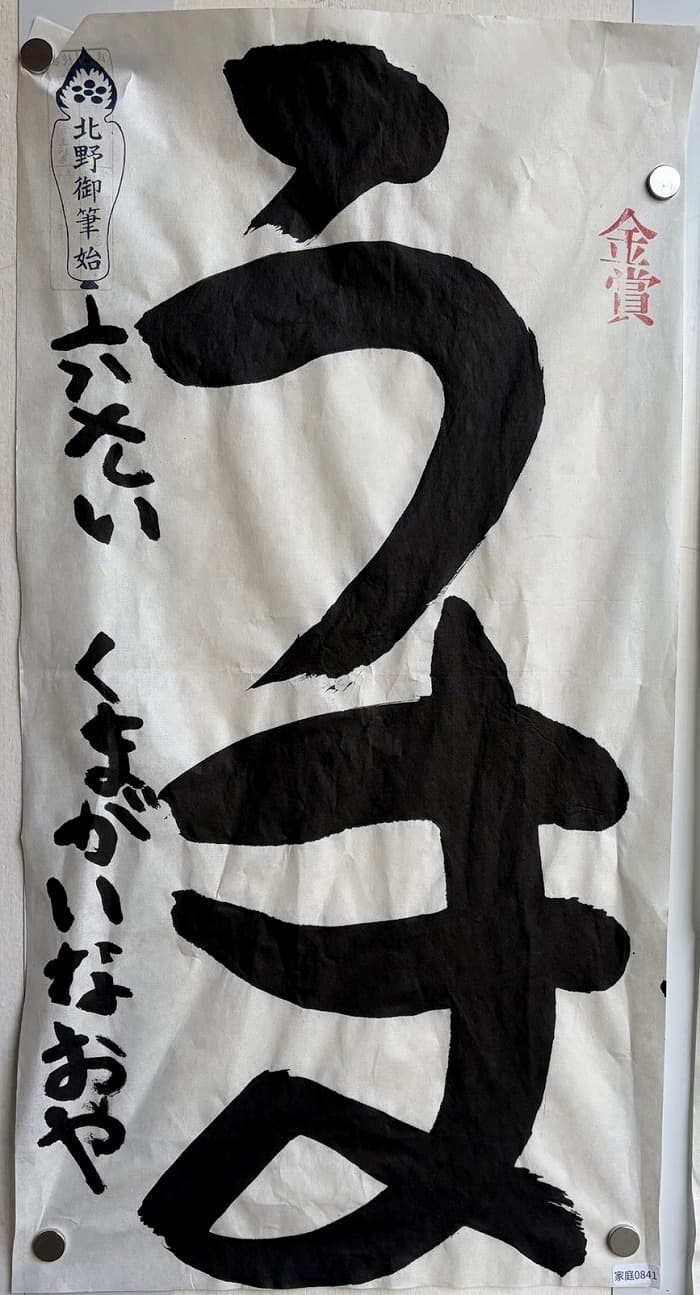 金賞
うま
北野御筆始
六さい くまがいなおや
家庭0841